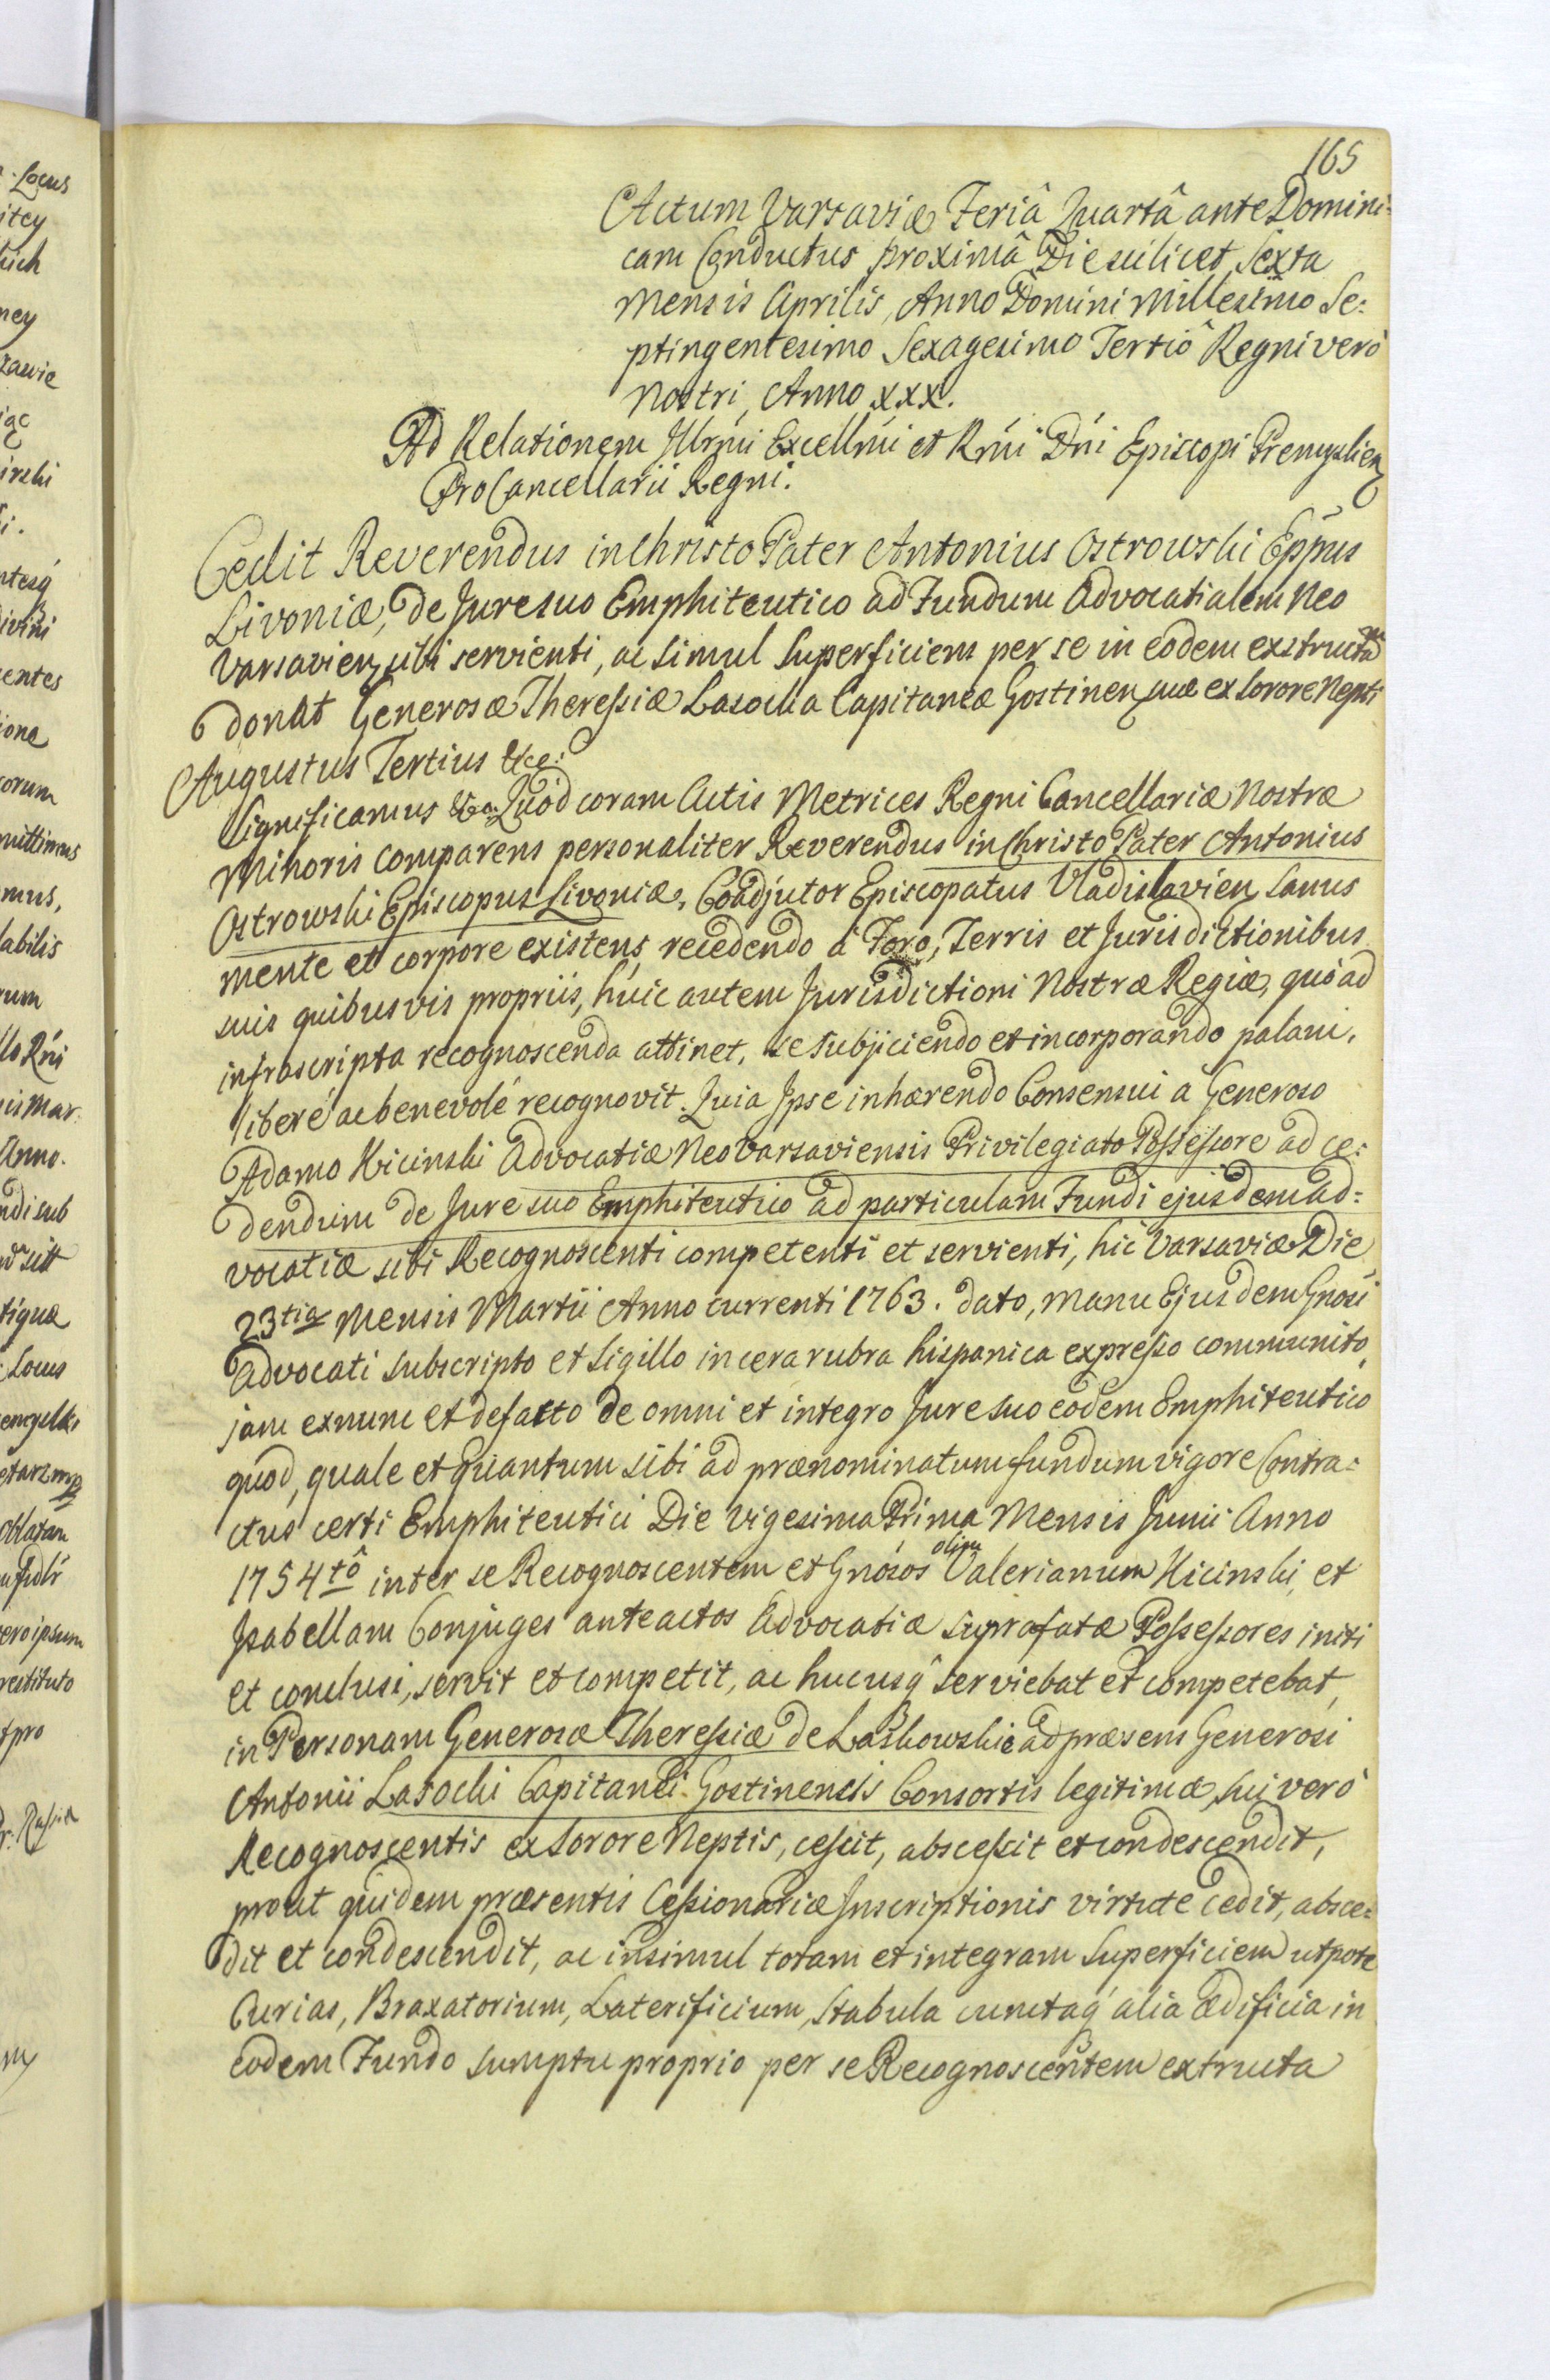 165
Actum Varsaviæ Feriâ Quartâ ante Domini=
cam Conductus proximâ Die scilicet Sexta
Mensis Aprilis, Anno Domini Millesimo Se=
ptingentesimo Sexagesimo Tertiô Regni verò
Nostri, Anno xxx.
Ad Relationem Illrmi Excellmi et Rmi Dni Episcopi Premyslien
ProCancellarii Regni.
Cedit Reverendus in Christo Pater Antonius Ostrowski Eppus
Livoniæ, de Jure suo Emphiteutico ad Fundum Advocatialem Neo
Varsavien sibi servienti, ac simul Superficiem per se in eodem exstructam
donat Generosæ Theressiæ Lasocka Capitaneæ Gostinen suæ ex Sorore Nepti
Augustus Tertius &ce:
Significamus &ca: Quod coram Actis Metrices Regni Cancellariæ Nostræ
Minoris comparens personaliter Reverendus in Christo Pater Antonius
Ostrowski Episcopus Livoniæ, Coadjutor Episcopatus Vladislavien, sanus
mente et corpore existens, recedendo à Foro, Terris et Jurisdictionibus
suis quibusvis propriis, huic autem Jurisdictioni Nostræ Regiæ, quò ad
infrascripta recognoscenda attinet, se subjiciendo et incorporando palam,
liberé ac benevolé recognovit. Quia Ipse inhærendo Consensui a Generoso
Adamo Kicinski Advocatiæ Neo Varsaviensis Privilegiato Possessore ad ce=
dendum de Jure suo Emphiteutico ad particulam Fundi ejusdem ad=
vocatiæ sibi Recognoscenti competenti et servienti, hic Varsaviæ Die
23tia Mensis Martii Anno currenti 1763. dato, manu Ejusdem Gnosi
Advocati subscripto et Sigillo in cera rubra hispanica expresso communito,
jam exnunc et defacto de omni et integro Jure suo eodem Emphiteutico
quod, quale et quantum sibi ad prænominatum fundum vigore Contra=
ctus certi Emphiteutici Die vigesima Prima Mensis Junii Anno
1754tô inter se Recognoscentem et Gnósos olim Valerianum Kicinski, et
Isabellam Conjuges anteactos Advocatiæ suprafatæ Possessores initi
et conclusi, servit et competit, ac hucusq serviebat et competebat,
in Personam Generosæ Theressiæ de Laskowskie ad præsens Generosi
Antonii Lasocki Capitanei Gostinensis Consortis legitimæ, sui verò
Recognoscentis ex Sorore Neptis, cessit, abscessit et condescendit,
prout quidem præsentis Cessionariæ Inscriptionis virtute cedit, absce=
dit et condescendit, ac insimul totam et integram Superficiem utpote
Curias, Braxatorium, Laterificium, Stabula cunctaq alia ædificia in
eodem Fundo sumptu proprio per se Recognoscentem extructa